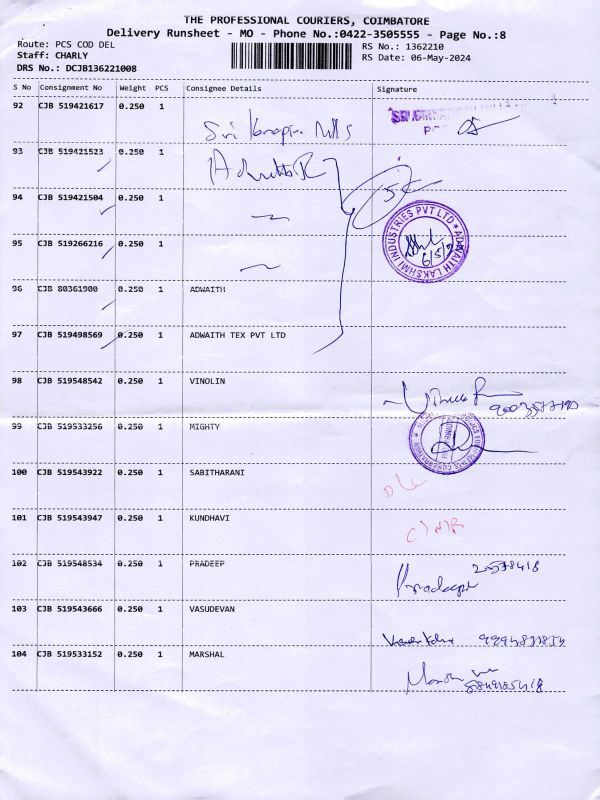 THE PROFESSIONAL COURIERS, COIMBATORE
Delivery Runsheet - MO - Phone No.:0422-3505555 - Page No.:8
Route: PCS COD DEL
Staff: CHARLY
DRS No.: DCJB136221008
RS No.: 1362210
RS Date: 06-May-2024
S No Consignment No Weight PCS Consignee Details Signature
92 CJB 519421617 0.250 1 Sri
93 CJB 519421523 0.250 1
94 CJB 519421504 0.250 1
95 CJB 519266216 0.250 1
ADWAITH LAKSHMI INDUSTRIES PVT LTD
96 CJB 80361900 0.250 1 ADWAITH
97 CJB 519498569 0.250 1 ADWAITH TEX PVT LTD
98 CJB 519548542 0.250 1 VINOLIN
99 CJB 519533256 0.250 1 MIGHTY
100 CJB 519543922 0.250 1 SABITHARANI
101 CJB 519543947 0.250 1 KUNDHAVI
102 CJB 519548534 0.250 1 PRADEEP
103 CJB 519543666 0.250 1 VASUDEVAN
104 CJB 519533152 0.250 1 MARSHAL